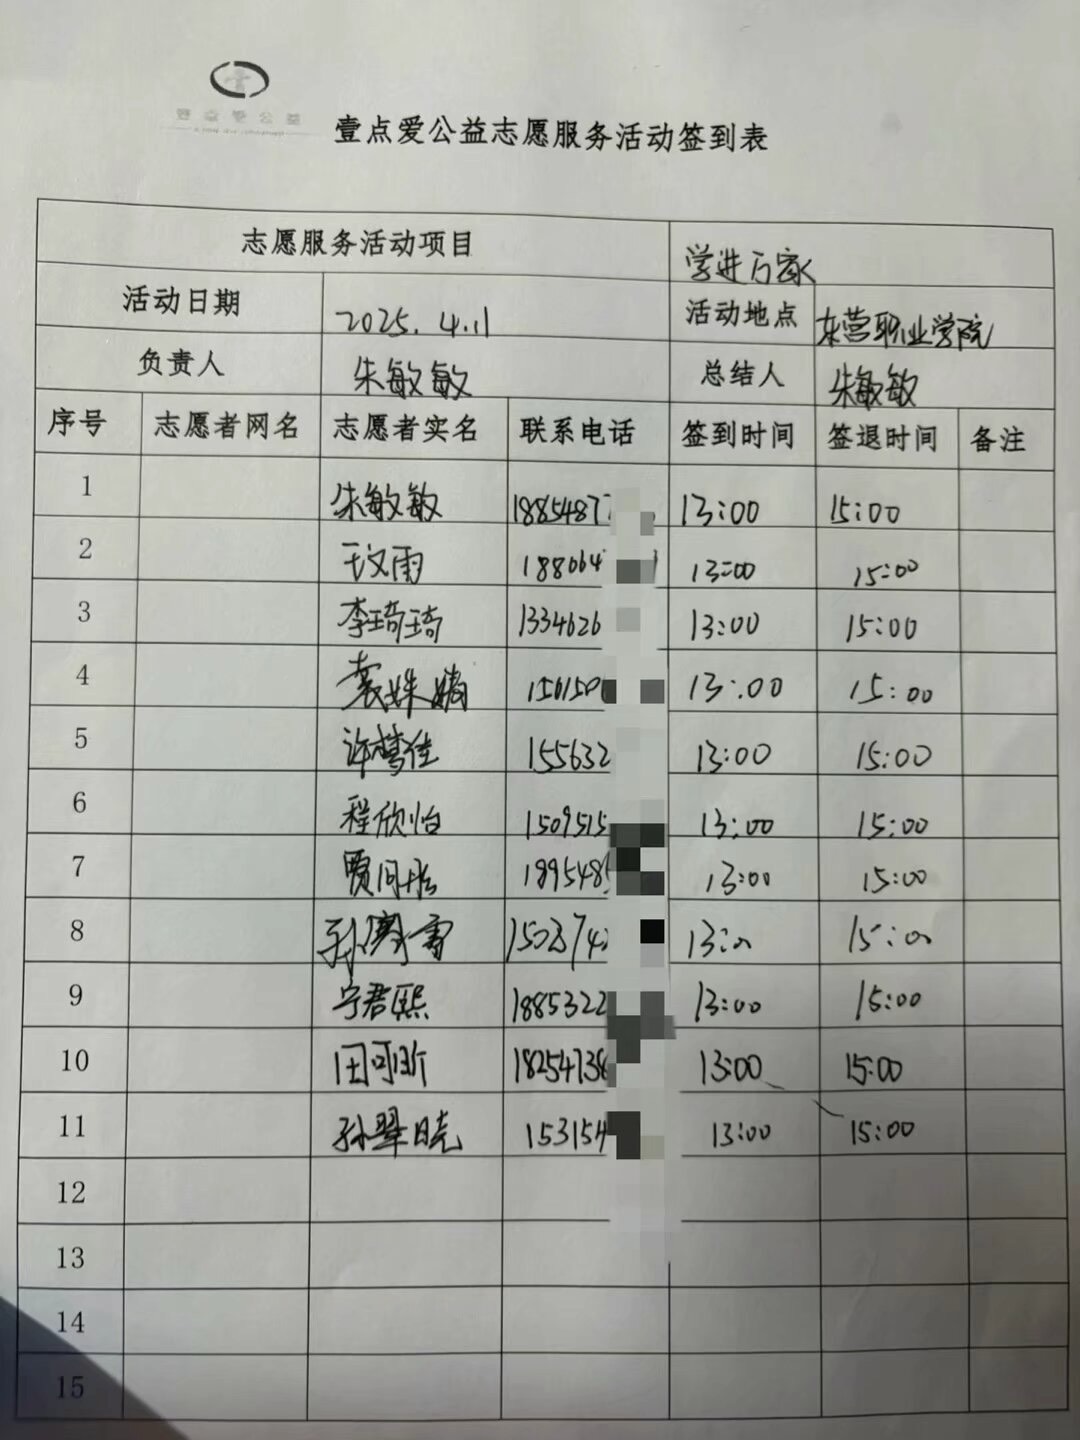 壹点爱公益
壹点爱公益志愿服务活动签到表
志愿服务活动项目 学进万家
活动日期 2025.4.11 活动地点 东营职业学院
负责人 朱敏敏 总结人 朱敏敏
序号 志愿者网名 志愿者实名 联系电话 签到时间 签退时间 备注
1 朱敏敏 1885487 13:00 15:00
2 王文雨 188064 13:00 15:00
3 李琦琦 1334626 13:00 15:00
4 袁姝婧 156150 13:00 15:00
5 许梦佳 155632 13:00 15:00
6 程欣怡 1509515 13:00 15:00
7 贾同彤 189548 13:00 15:00
8 150374 13:00 15:00
9 宁君熙 1885322 13:00 15:00
10 田可昕 1825473 13:00 15:00
11 孙翠晓 153154 13:00 15:00
12
13
14
15